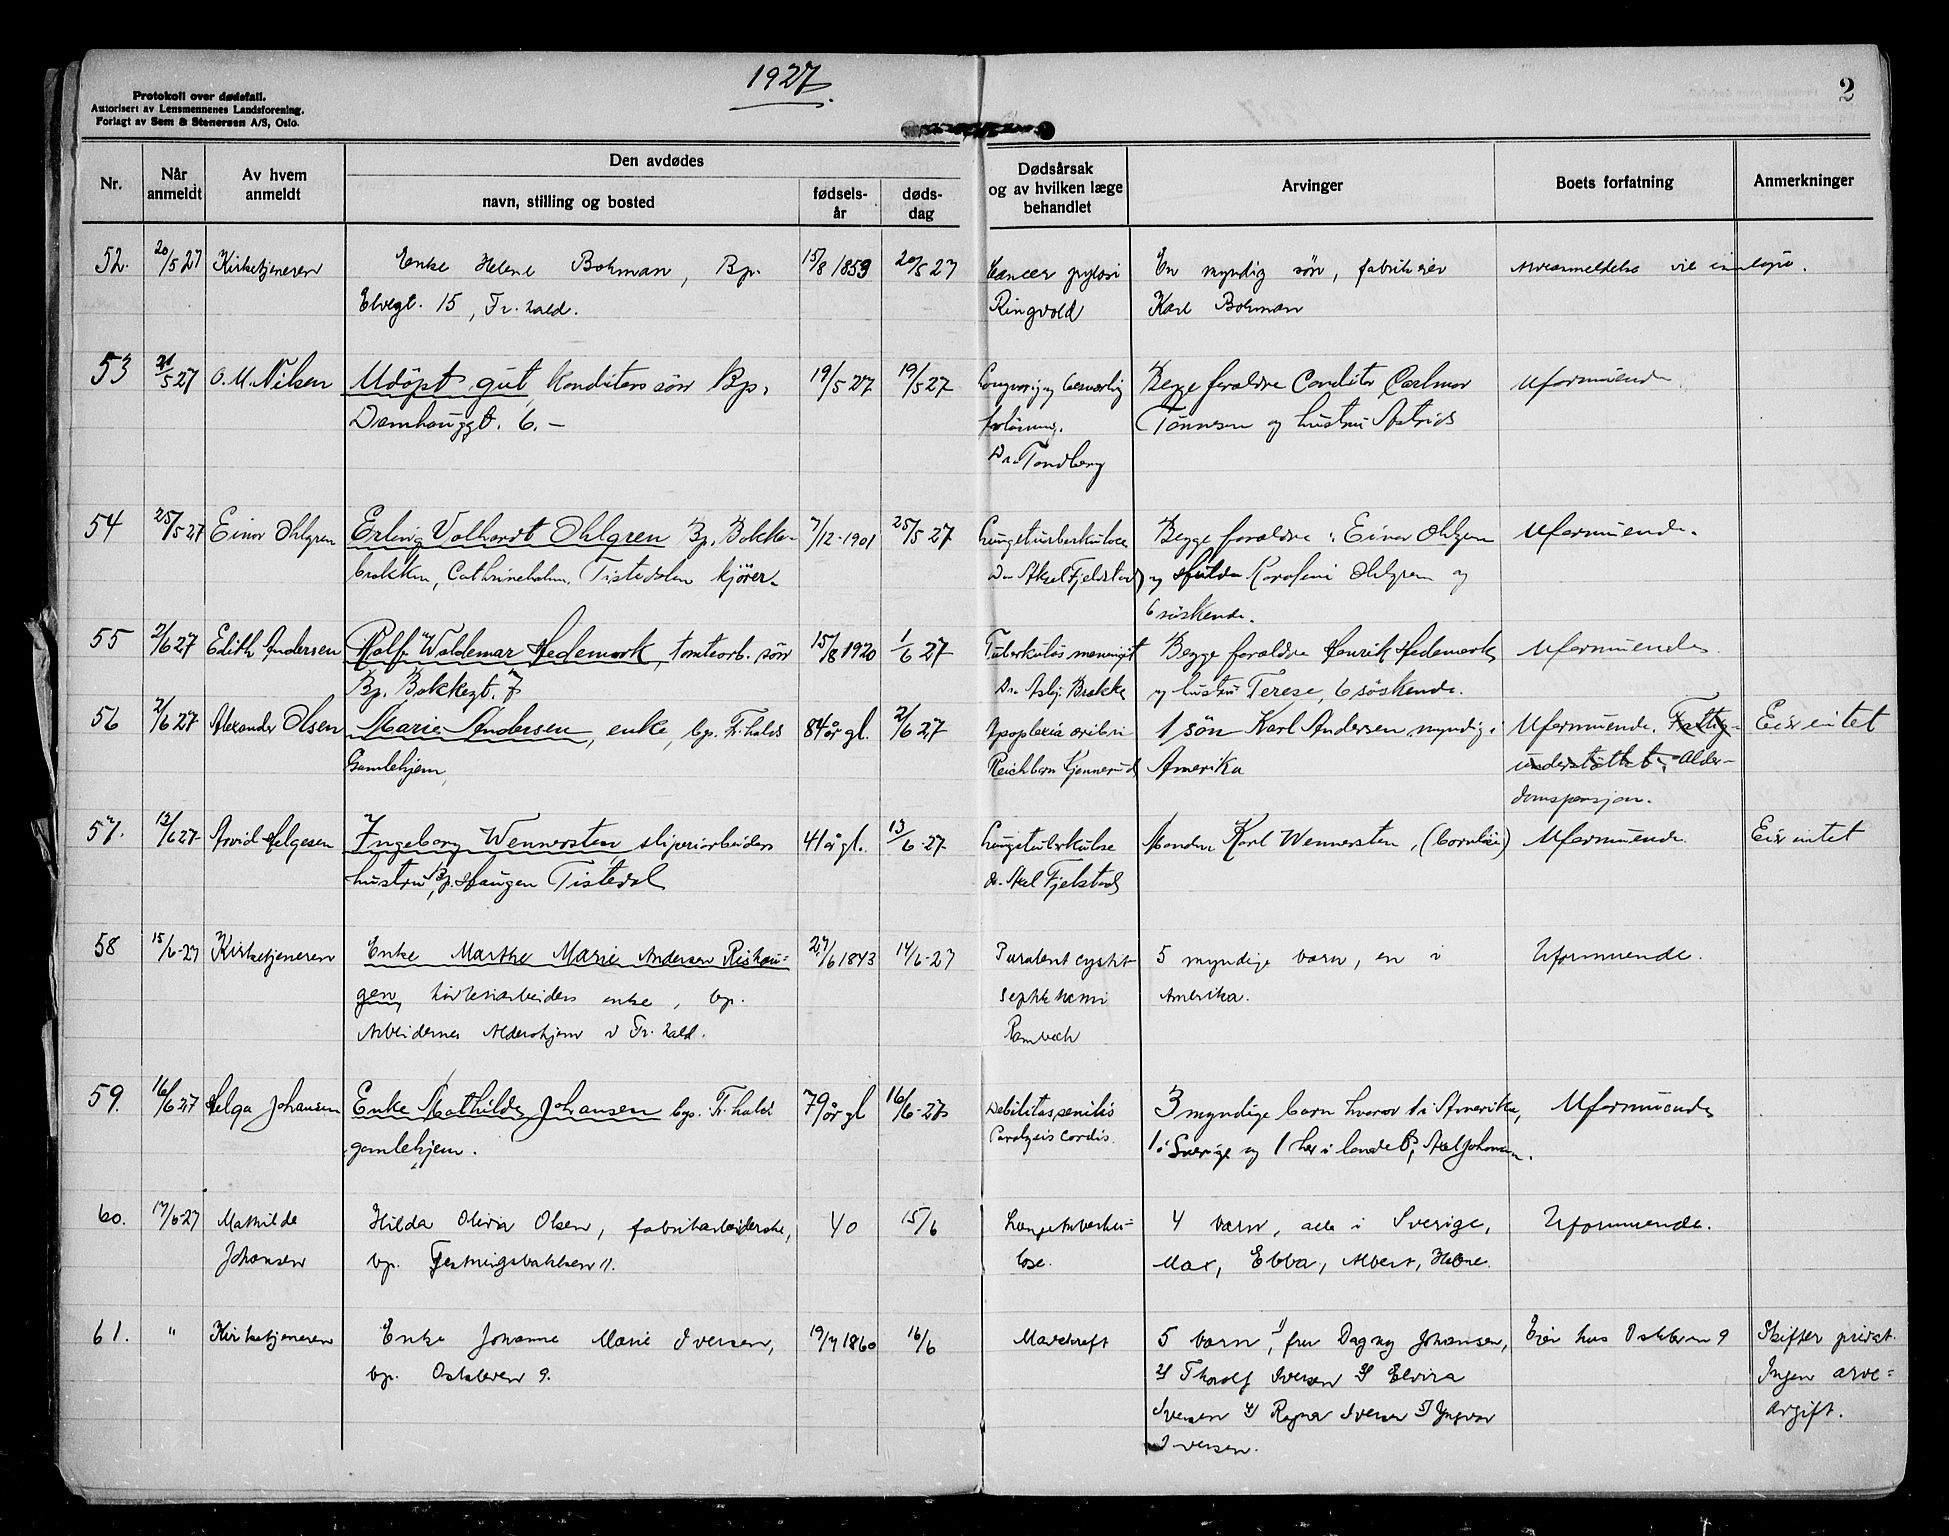 1927.
2
Protokoll over dødsfall.
Autorisert av Lensmennenes Landsforening.
Forlagt av Sem & Stenersen A/S, Oslo.
Nr. Når anmeldt Av hvem anmeldt Den avdødes Dødsårsak og av hvilken læge behandlet Arvinger Boets forfatning Anmerkninger
navn, stilling og bosted fødsels-år døds-dag
52. 20/5 27 Kirketjeneren Enke Helene Bohman, Bp. 15/8 1859 20/5 27 Cancer pylori En myndig søn, fabrikeier Arveanmeldelse vil innløpe.
Elvegt. 15, Fr.hald. Ringvold Karl Bohman
53 21/5 27 O. M. Nilsen Udöpt gut, Konditers sön Bp. 19/5 27 19/5 27 Langvarig besværlig Begge foraldre Conditer Carlmar Uformuende
Damhauggt. 6. – forløsning. Tönnesen og hustru Astrid
Dr. Tandberg
54 25/5 27 Einar Ohlgren Erling Valhardt Ohlgren Bp. Bakke- 7/12-1901 25/5 27 Lungetuberkulose Begge foraldre: Einar Ohlgren Uformuende.
brakken, Cathrineholm, Tistedalen kjörer. Dr. Aksel Fjeldstad og Hulda Karoline Ohlgren og
6 söskende.
55 2/6 27 Edith Andersen Rolf Waldemar Hedemark, tomteorb. sön 15/8 1920 1/6 27 Tuberkulös meningit Begge foraldre Henrik Hedemark Uformuende
Bp. Bakkegt. 7 Dr. Asbj. Brække og hustru Terese, 6 söskende.
56 2/6 27 Alexander Olsen Marie Andersen, enke, bp. Fr.halds 84 år gl. 2/6 27 Apoplexia 1 sön Karl Andersen myndig i Uformuende. Fattig- Eier intet
Gamlehjem, Amerika understöttet, Alder-
domspensjon.
57. 13/6 27 Arvid Helgesen Ingeborg Wennersten sliperiarbeiders 41 år gl. 13/6-27 Lungetuberkulose Manden Karl Wennersten, (barnløs) Uformuende. Eier intet
hustru, Bp. Haugen Tistedal dr. Axel Fjelstad
58 15/6-27 Kirketjeneren Enke Marthe Marie Andersen Rishau= 27/6 1843 14/6-27 Purulent cystit 5 myndige barn, en i Uformuende.
gen, enke, bp. Amerika.
Arbeidernes Aldershjem v Fr.hald. Rambech
59. 16/6 27 Helga Johansen Enke Mathilde Johansen bp. Fr.hald 79 år gl 16/6-27 Debilitas senilis 3 myndige barn hvorav 1 i Amerika, Uformuende
gamlehjem. Paralysis cordis. 1 i Sverige og 1 her i landet, Axel Johansen.
60. 17/6-27 Mathilde Hilda Olivia Olsen, fabrikarbeiderske, 40 15/6 Lungetuberku- 4 barn, alle i Sverige, Uformuende.
Johansen bp. Festningsbakken 11. lose. Max, Ebba, Albert, Helene.
61. " Kirketjeneren Enke Johanne Marie Iversen, 19/7 1860 16/6 Mavekreft 5 barn, 1) fru Dagny Johansen, Eier hus Oskleven 9 Skifter privat.
bp. Oskleven 9. 2) Thorolf Iversen 3) Elvira Ingen arve=
Iversen 4) Ragna Iversen 5) Yngvar avgift.
Iversen.